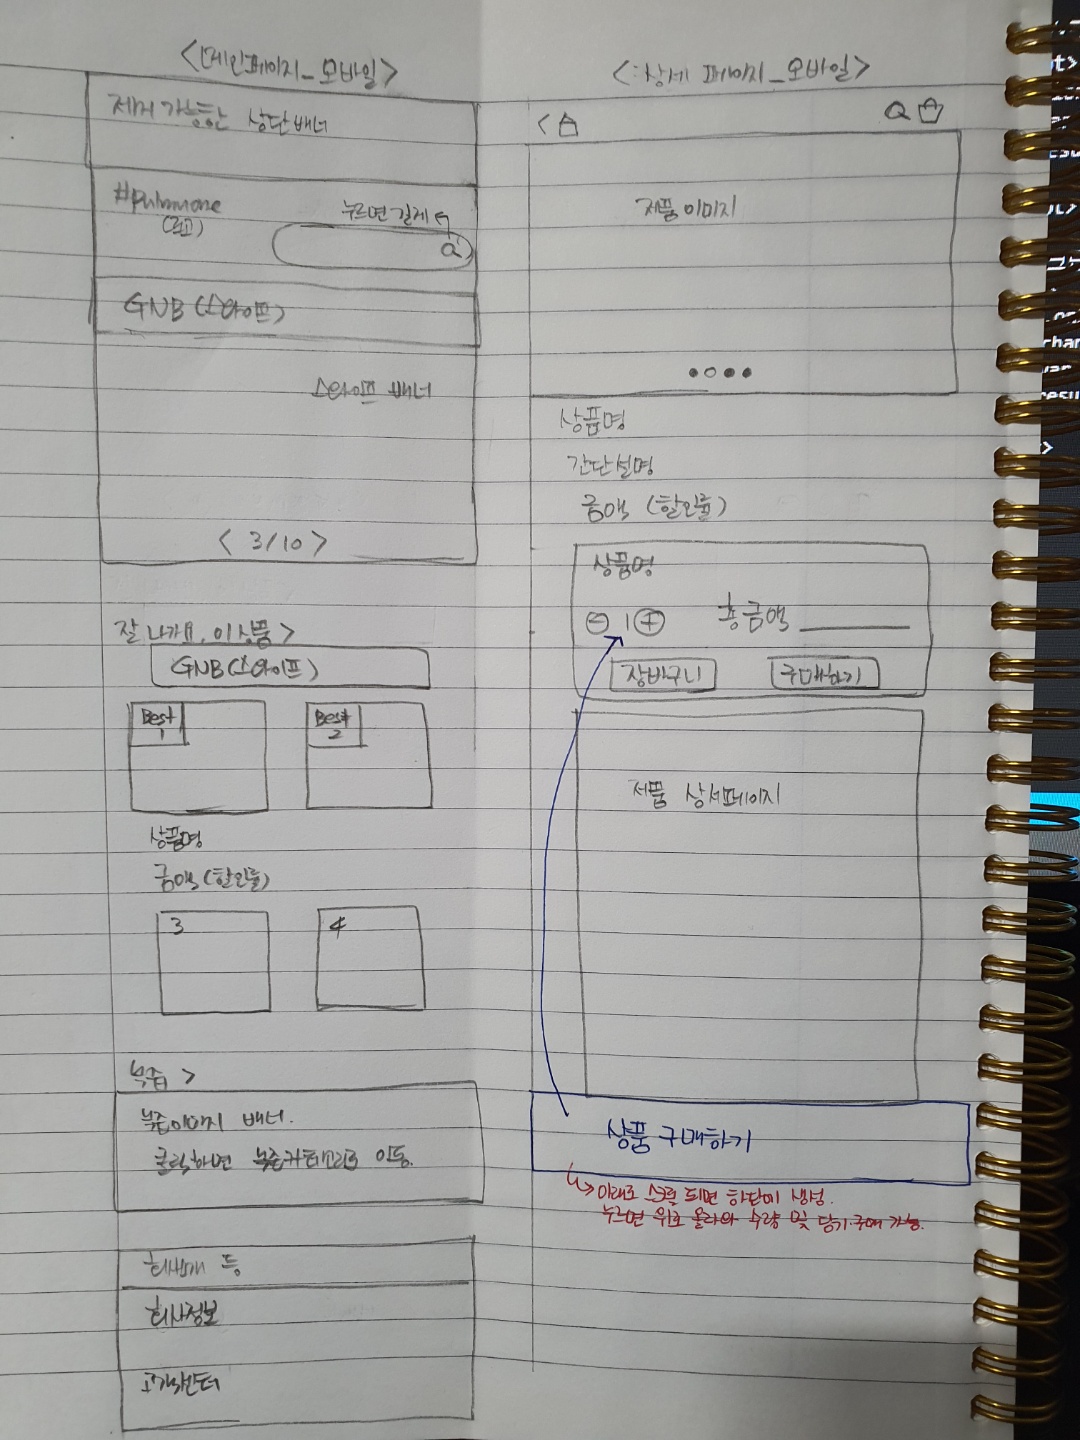 <메인페이지_모바일>
제거 가능한 상단배너
#pulmuone
(로고)
누르면 길게
GNB (스와이프)
스와이프 배너
< 3/10 >
잘 나가요, 이 상품 >
GNB(스와이프)
Best 1
Best 2
상품명
금액(할인율)
3
4
녹즙 >
녹즙이미지 배너.
클릭하면 녹즙카테고리로 이동.
회사소개 등
회사정보
고객센터
<상세 페이지_모바일>
<
제품 이미지
상품명
간단설명
금액 (할인율)
상품명
- 1 +
총금액
장바구니
구매하기
제품 상세페이지
상품 구매하기
↳ 아래로 스크롤 되면 하단에 생성.
누르면 위로 올라와 수량 및 담기·구매 가능.